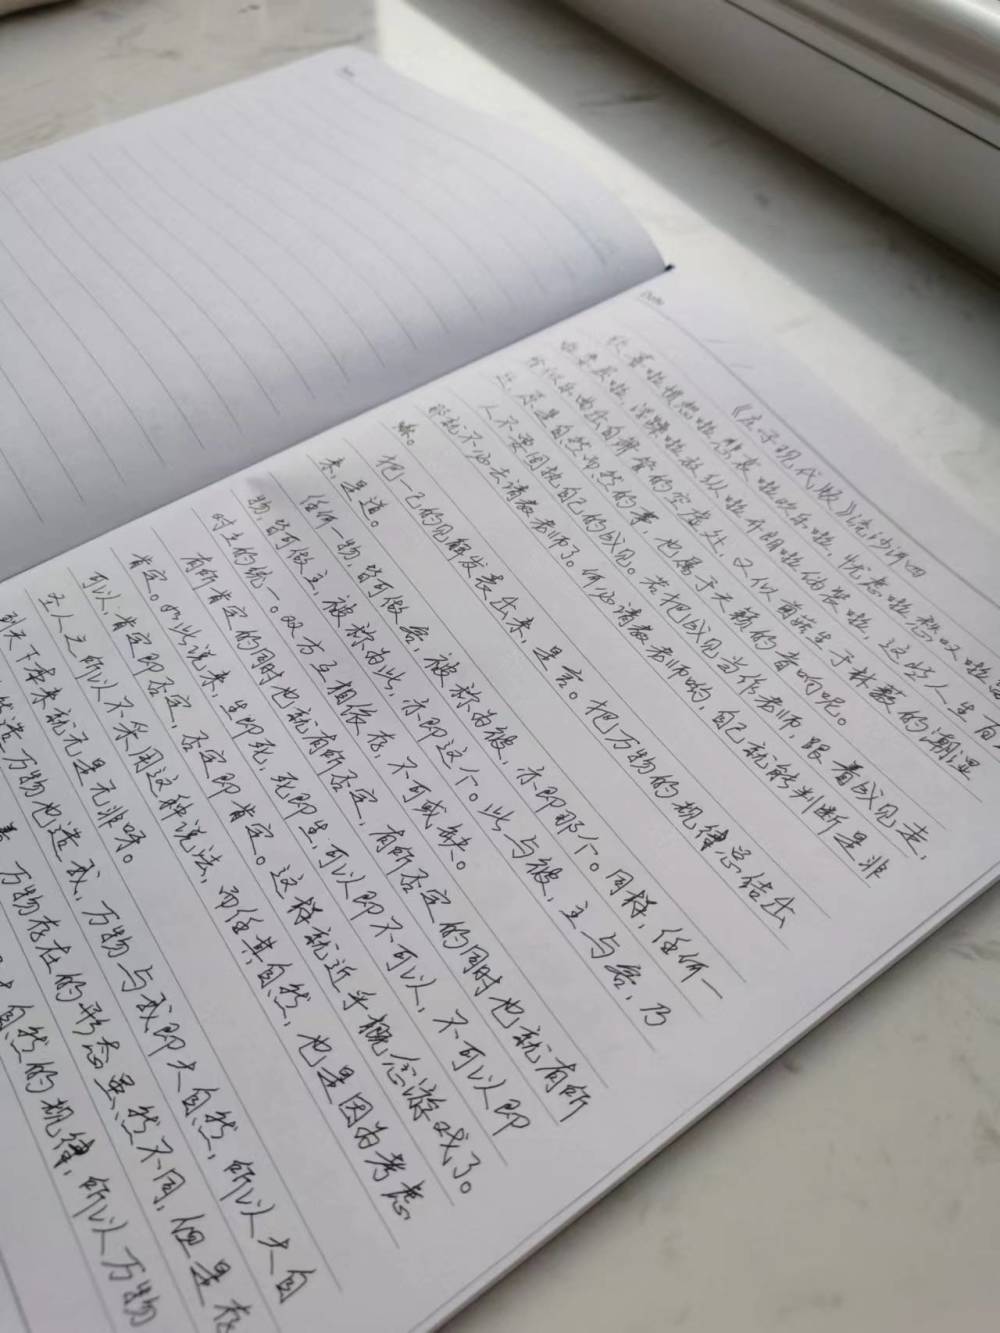 Date
《庄子现代版》流沙河四
欣喜啦愤怒啦悲哀啦欢乐啦，忧虑啦
啦，浮躁啦放纵啦开朗啦啦，这些人生百
仿似乐曲出自箫管的空虚处，又似菌菇生于朽败的潮湿
处，是自然而然的事，也属于天籁的音响呢。
人不要固执自己的成见。若把成见当作老师，跟着成见走，
那就不必去请教老师了。何必请教老师哟，自己就能判断是非
嘛。
把一己的见解发表出来，是言。把万物的规律总结出
来，是道。
任何一物，皆可做客，被称为彼，亦即那个。同样，任何一
物，皆可做主，被称为此，亦即这个。此与彼，主与客，乃
对立的统一。双方互相依存，不可或缺。
有所肯定的同时也就有所否定，有所否定的同时也就有所
肯定。如此说来，生即死，死即生，可以即不可以，不可以即
可以，肯定即否定，否定即肯定。这样就近乎概念游戏了。
圣人之所以不采用这种说法，而任其自然，也是因为考虑
到天下本来就无是无非呀。
造万物也造我，万物与我即大自然，所以大自
万物存在的形态虽然不同，但是存
自然的规律，所以万物